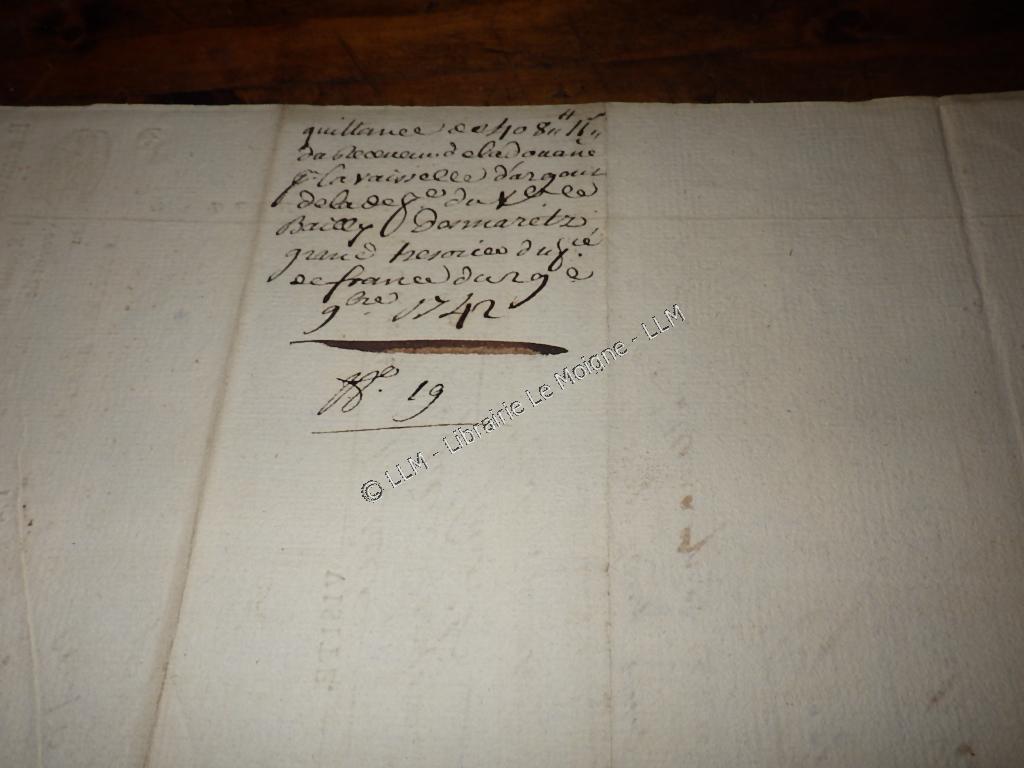 quittance de 408ᵗᵗ 11ˢ
du Receveur de la Douane
pr la vaisselle d'argent
de la
Bailly Desmaretz
grand tresorier du
de france du 29e
9bre 1742
No. 19
© LLM - Librairie Le Moigne - LLM
VISITE